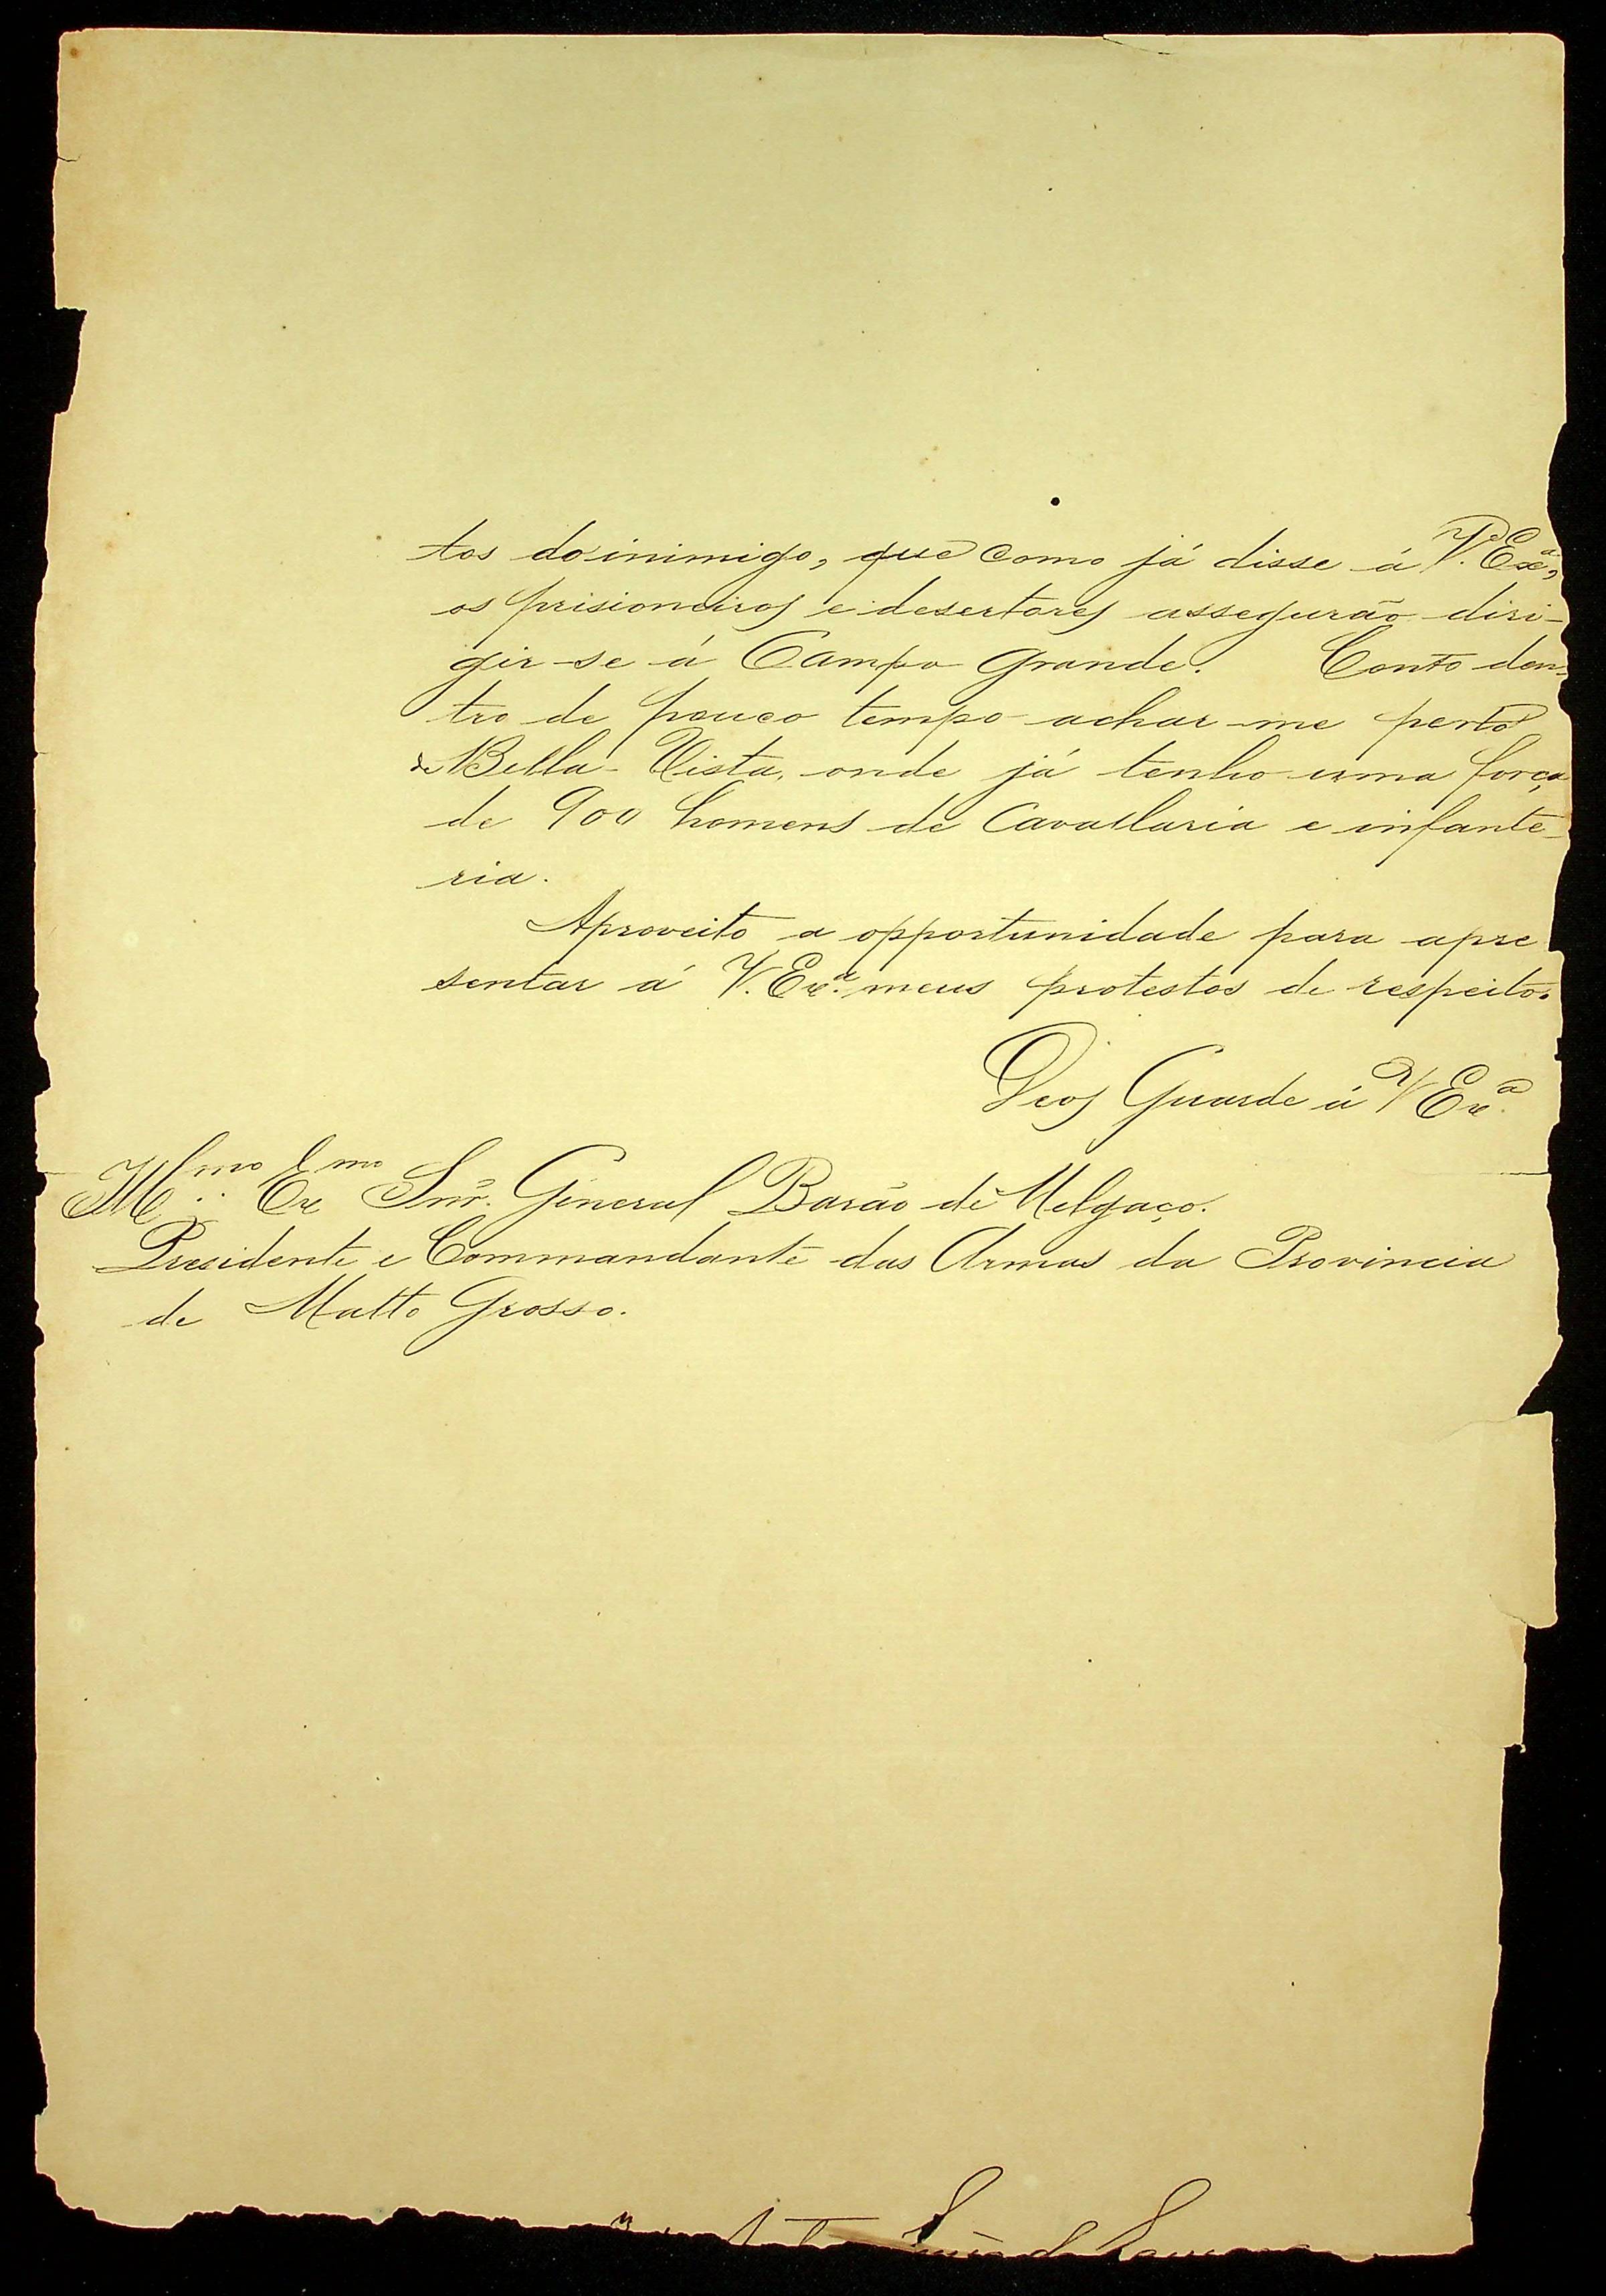 tos do inimigo, que como já disse á V. Exª,
os prisioneiros e desertores assegurão diri-
gir-se á Campo Grande. Conto den-
tro de pouco tempo achar-me perto
de Bella-Vista, onde já tenho uma força
de 900 homens de Cavallaria e infante-
ria.
Aproveito a opportunidade para apre
sentar á V. Exª. meus protestos de respeito.
Deos Guarde á V Exª.
Illmo Exmo Snr. General Barão de Melgaço.
Presidente e Commandante das Armas da Provincia
de Matto Grosso.